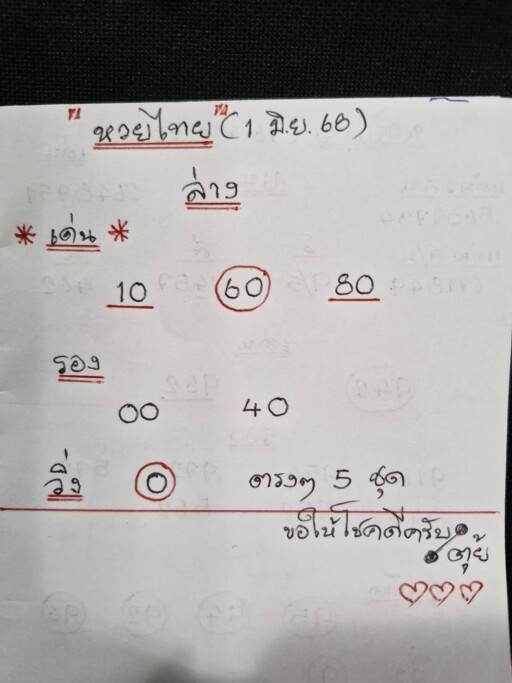 " หวยไทย " (1 มิ.ย. 68)
ล่าง
* เด่น *
10 60 80
รอง
00 40
วิ่ง 0 ตรงๆ 5 ชุด
ขอให้โชคดีครับ
ตุ้ย